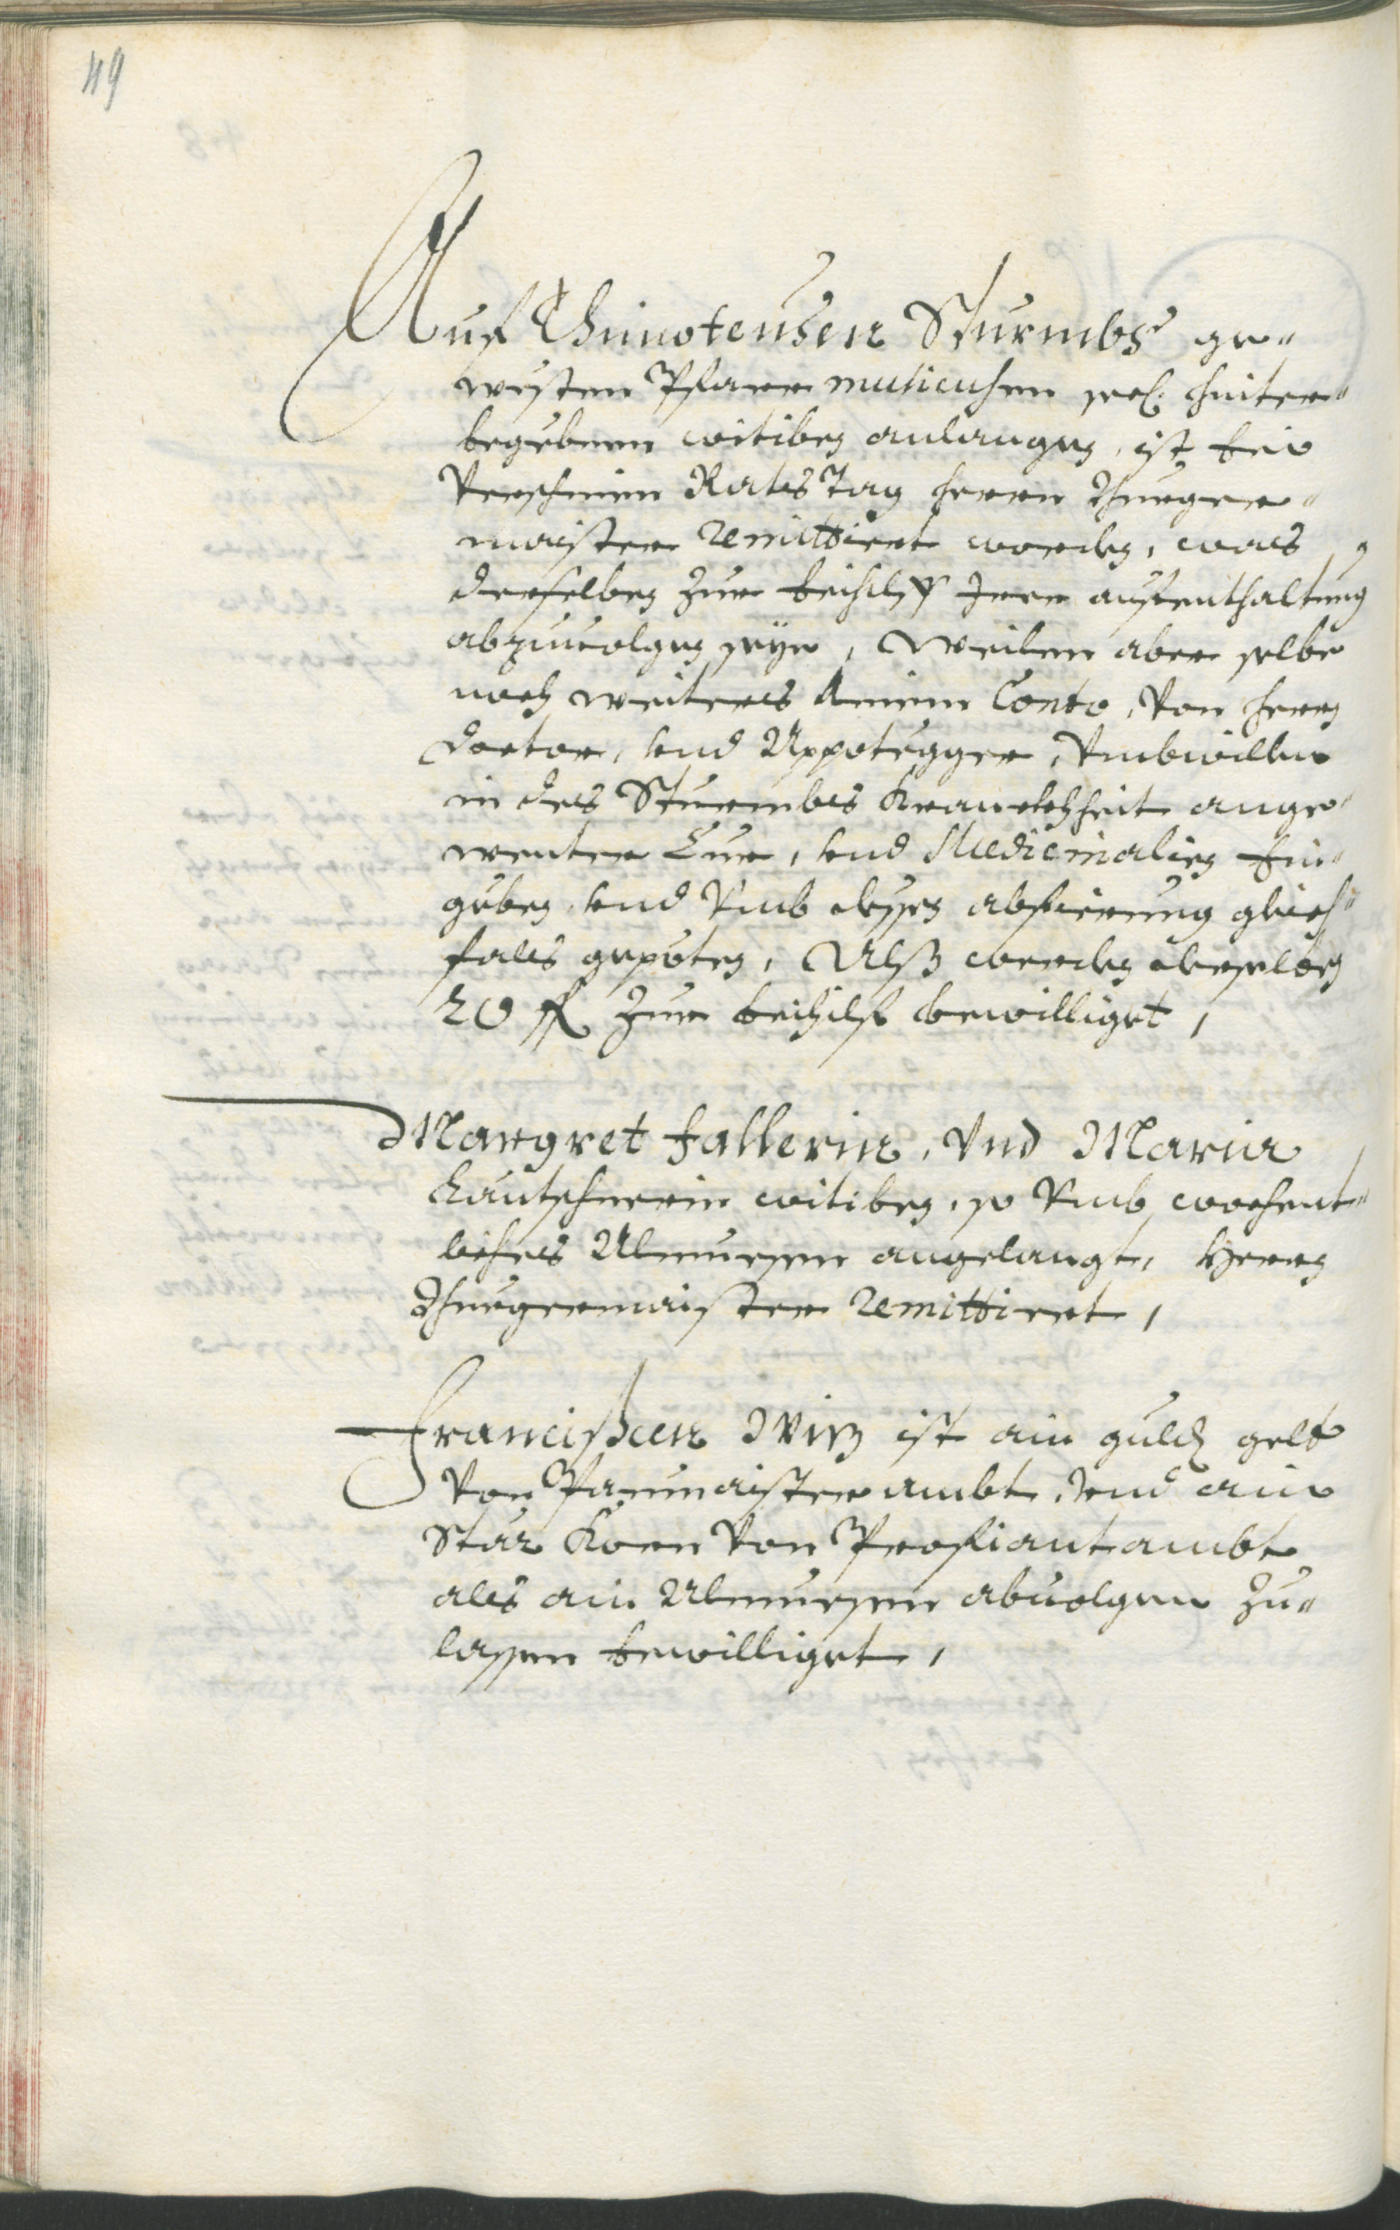 49
Auf Thimoteusen Sturmbs ge-
westen Pfarr musicusen seel. hinter-
begebnen witiben anlangen, ist bei
Verschinen Rats Tag herrn Burger-
maister remittiert worden, was
derselben zur beihilff Irer aufenthaltung
abzuuolgen seye, Weilen aber selbe
noch weiters Ainem Conto, Von herrn
Doctor, und Appotegger, Umbwillen
in des Sturmbs Kranckhheit ange-
wenter Cur, und Medicinalien Ein-
geben, und Umb dessen abfierung gleich-
fals gepeten, Alß werden derselben
20 fl zur beihilf bewilliget,
Margret Fallerin, Und Maria
Lautscherin witiben, so Umb wochent-
liches Almuesen angelangt, Herrn
Burgermaister remittiert,
Francißcen Wiß ist ain guld gelt
Von Paumaisterambt, und ain
Stär Korn Von Profiantambt
als ain Almuesen abuolgen zu-
lassen bewilliget,